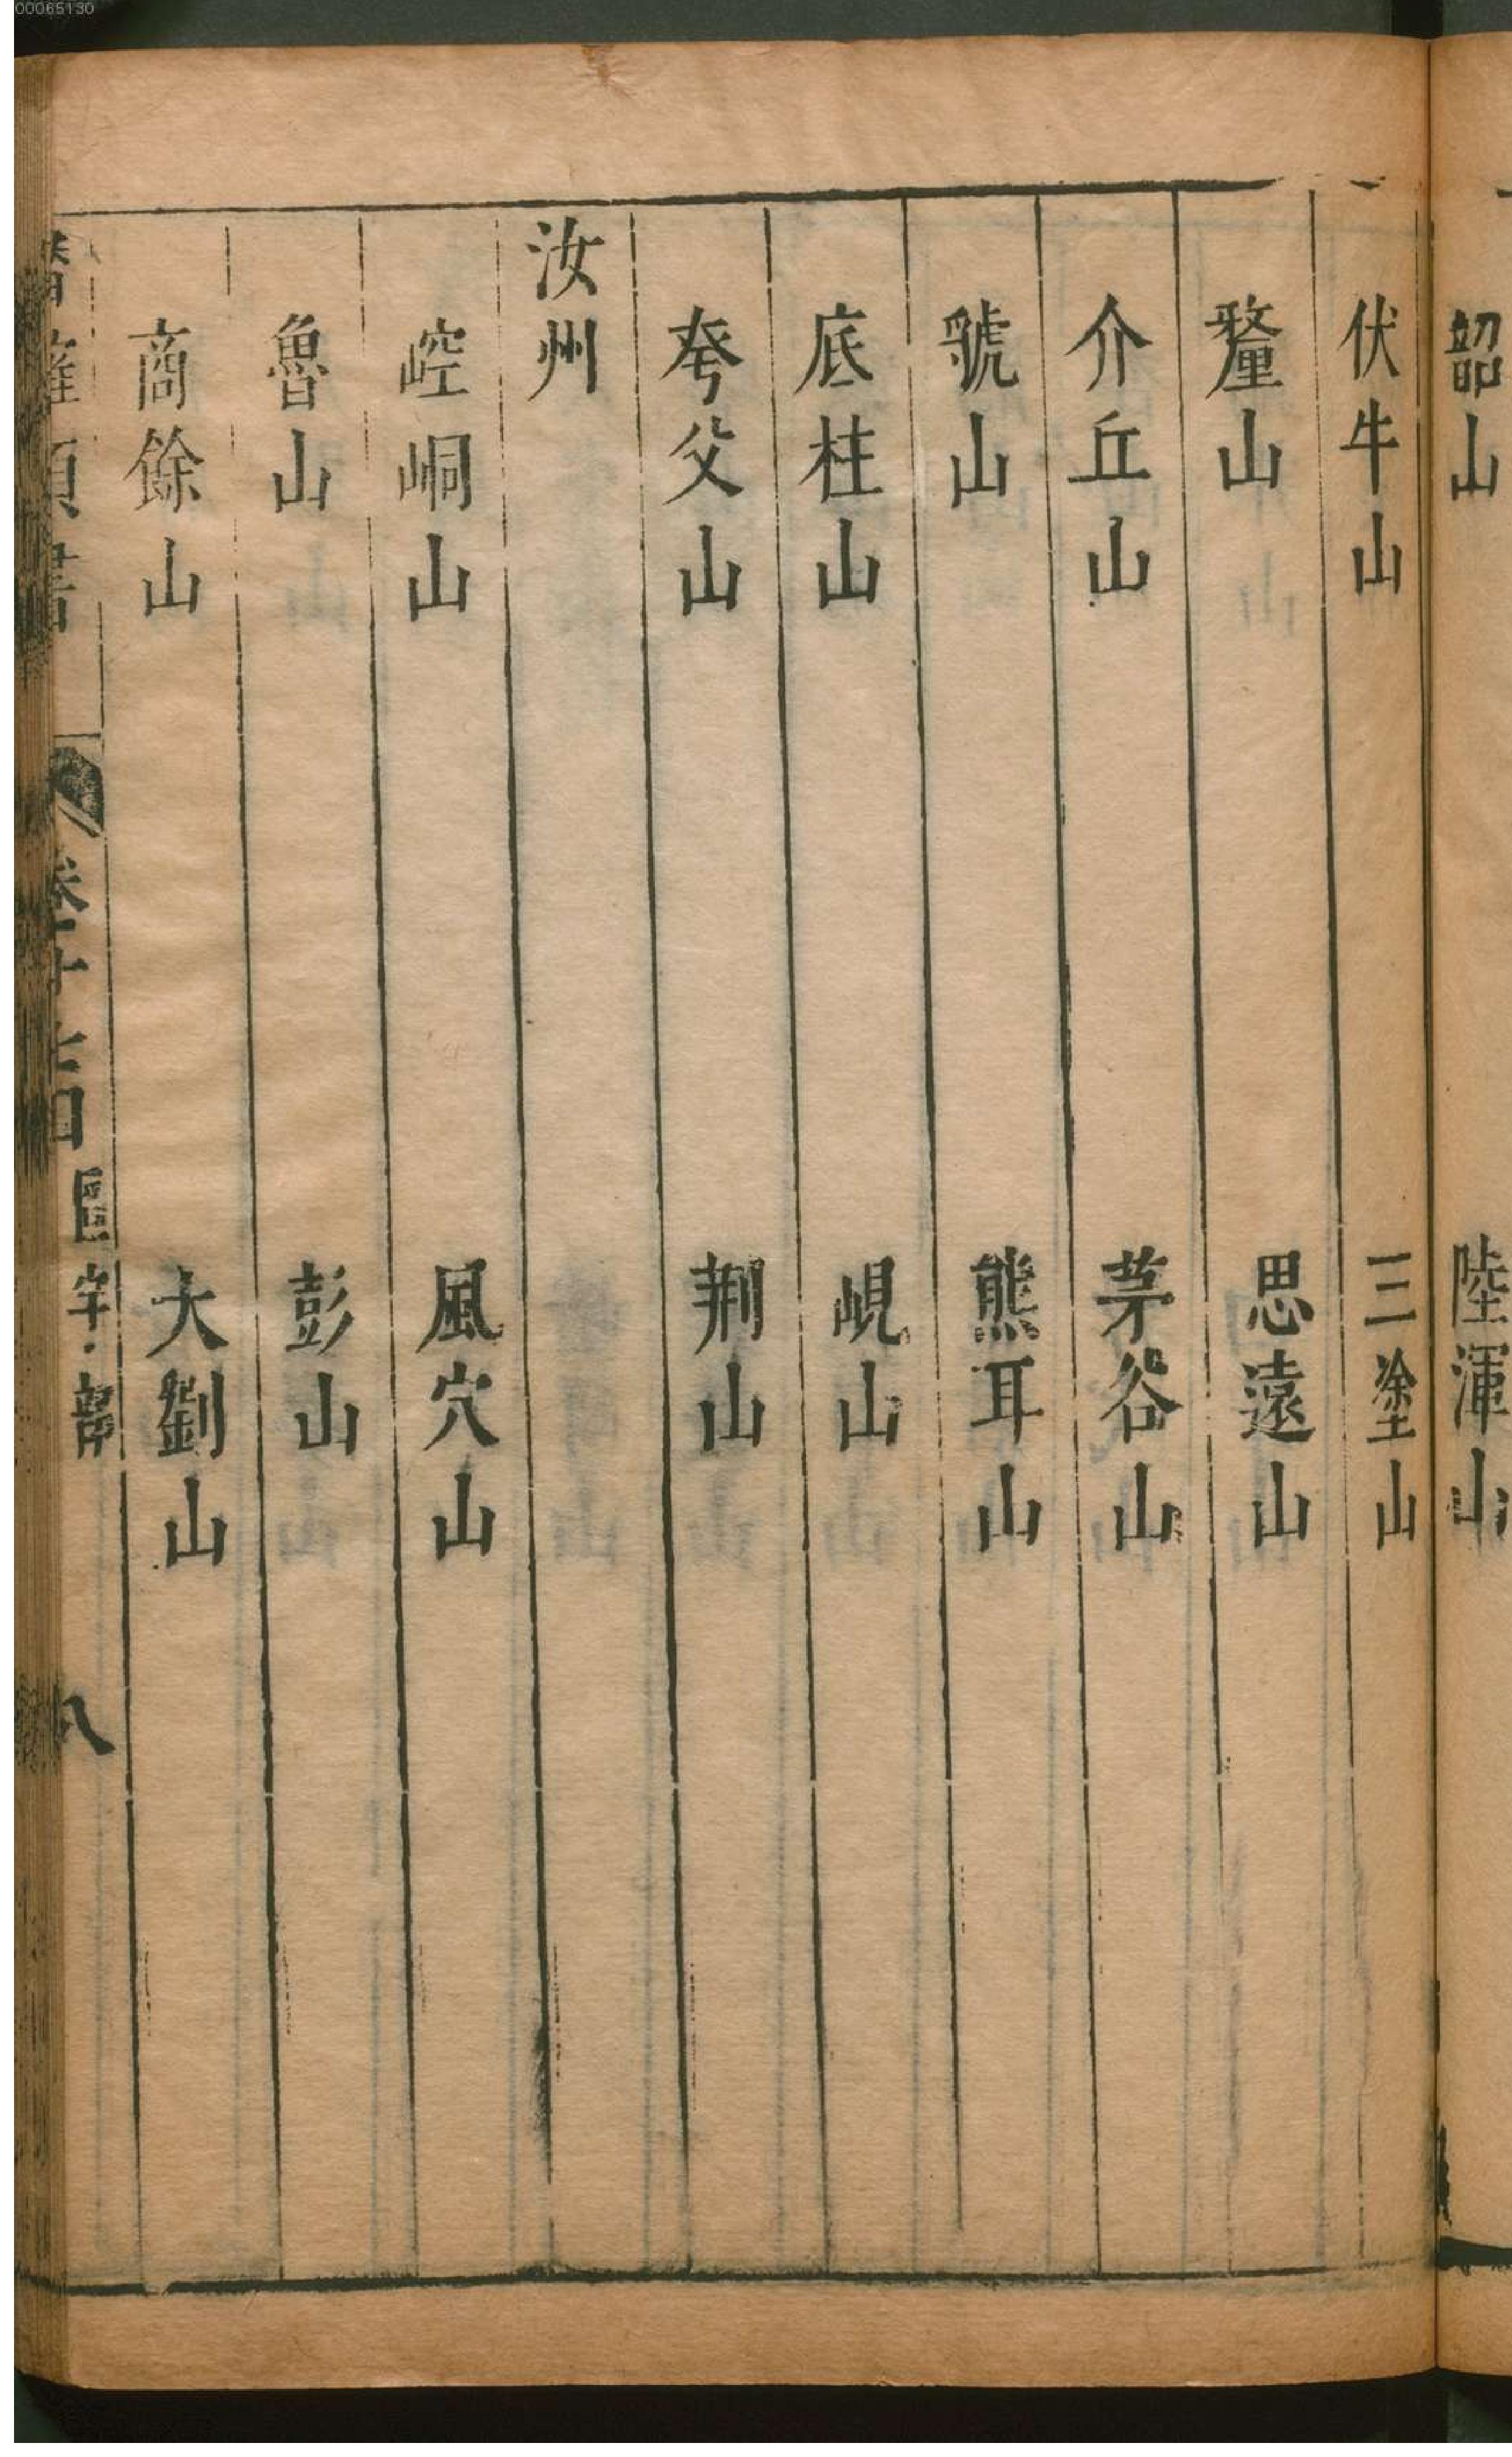 00065130
韶山 陸渾山
伏牛山 三塗山
釐山 思遠山
介丘山 茅谷山
虢山 熊耳山
底柱山 峴山
夸父山 荆山
汝州
崆峒山 風穴山
魯山 彭山
商餘山 大劉山
八